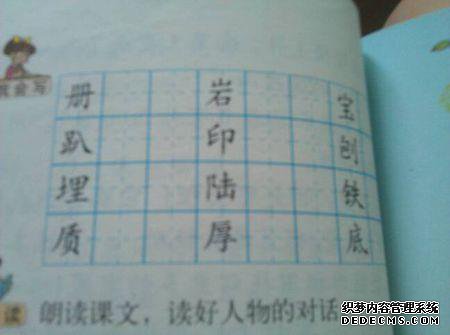 我会写
册 岩 宝
趴 印 刨
埋 陆 铁
质 厚 底
读 朗读课文，读好人物的对话
织梦内容管理系统
DEDECMS.COM